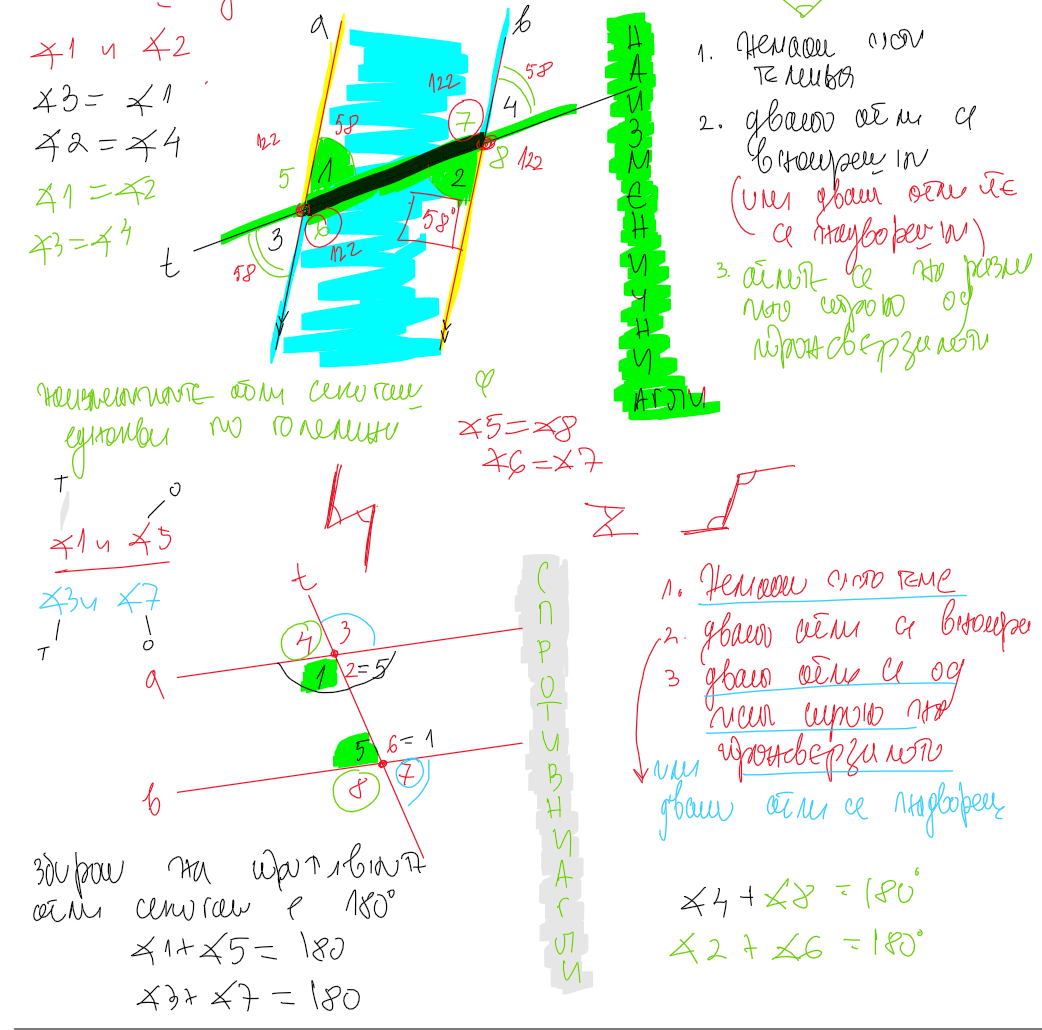 ∡1 и ∡2
∡3 = ∡1
∡2 = ∡4
∡1 = ∡2
∡3 = ∡4
a
b
122
58
5
1
3
58
6
122
t
122
7
58
4
2
8
122
58°
НАИЗМЕНИЧНИ
АГЛИ
1. Немаат исти
темиња
2. двата агли се
внатрешн
(или двата агли ќе
се надворешн)
3. аглите се на разли
чна страна од
трансверзалата
наизменичните агли секогаш
еднакви по големина
∡5 = ∡8
∡6 = ∡7
Т
О
∡1 и ∡5
∡3 и ∡7
Т
О
Z
t
4
3
a
1
2 = 5
5
6 = 1
b
8
7
СПРОТИВНИ АГЛИ
1. Немаат исто теме
2. двата агли се внатре
3 двата агли се од
иста страна на
трансверзалата
или
двата агли се надвореш
Збирот на спротивните
агли секогаш е 180°
∡1 + ∡5 = 180
∡3 + ∡7 = 180
∡4 + ∡8 = 180°
∡2 + ∡6 = 180°